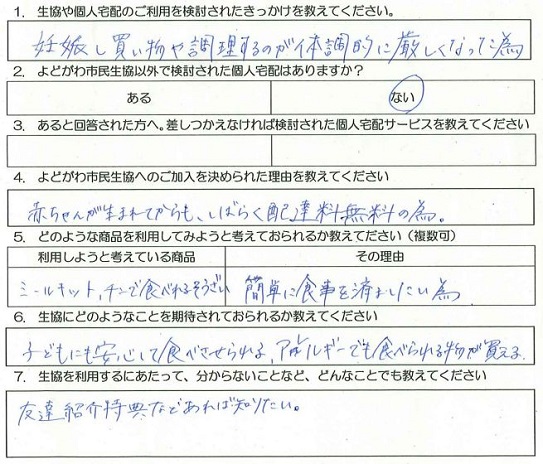 1. 生協や個人宅配のご利用を検討されたきっかけを教えてください。
妊娠し買い物や調理するのが体調的に厳しくなった為
2. よどがわ市民生協以外で検討された個人宅配はありますか?
ある ない
3. あると回答された方へ。差しつかえなければ検討された個人宅配サービスを教えてください
4. よどがわ市民生協へのご加入を決められた理由を教えてください
赤ちゃんが生まれてからも、しばらく配達料無料の為。
5. どのような商品を利用してみようと考えておられるか教えてださい(複数可)
利用しようと考えている商品 その理由
ミールキット,チンで食べれるそうざい 簡単に食事を済ましたい為
6. 生協にどのようなことを期待されておられるか教えてください
子どもにも安心して食べさせられる,アレルギーでも食べられる物が買える.
7. 生協を利用するにあたって、分からないことなど、どんなことでも教えてください
友達紹介特典などあれば知りたい。